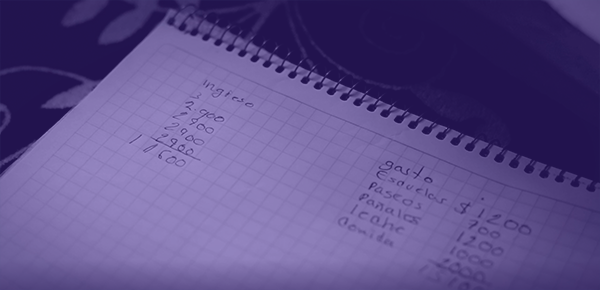 Ingreso
2 900
2 900
2 900
2 900
11600
gasto
Escuelas $ 1200
Paseos 700
Pañales 1200
leche 1000
comida